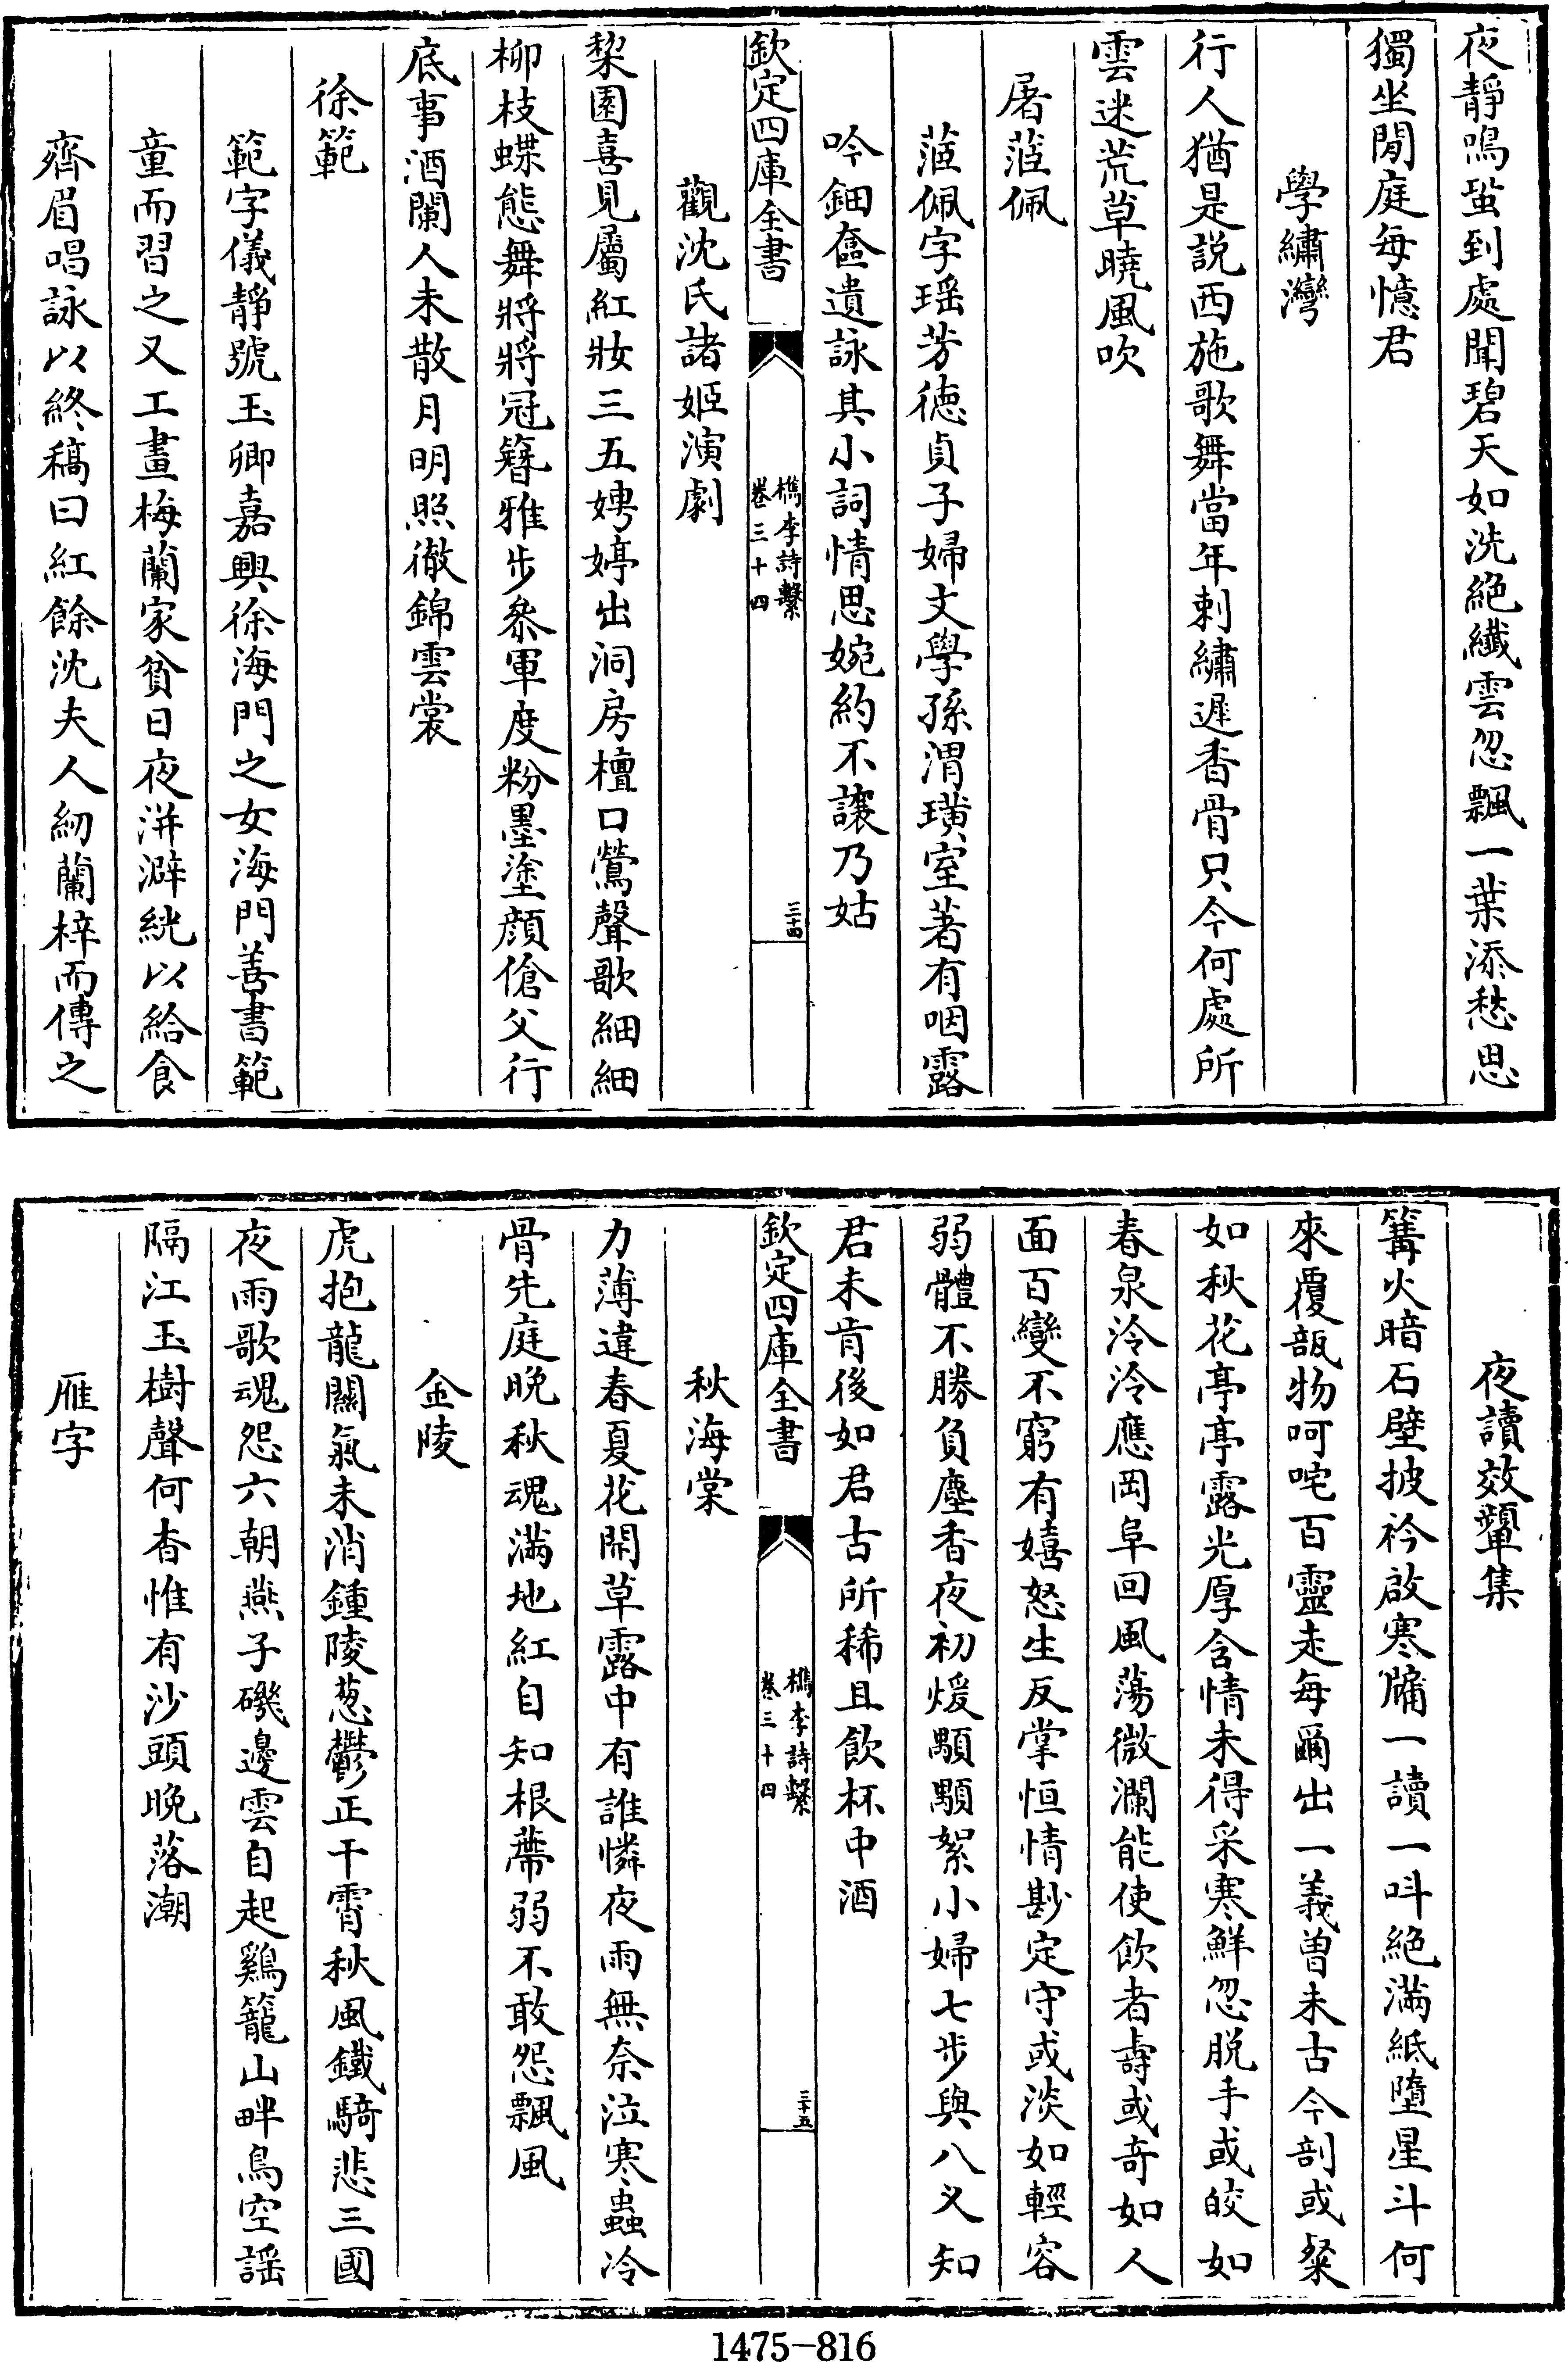 夜靜鳴蛩到處聞碧天如洗絕纖雲忽飄一葉添愁思
獨坐閒庭每憶君
學繡灣
行人猶是説西施歌舞當年刺繡遲香骨只今何處所
雲迷荒草曉風吹
屠茝佩
茝佩字瑶芳徳貞子婦文學孫渭璜室著有咽露
吟鈿奩遺詠其小詞情思婉約不讓乃姑
欽定四庫全書
檇李詩繫
卷三十四
三十四
觀沈氏諸姬演劇
棃園喜見屬紅妝三五娉婷出洞房檀口鶯聲歌細細
柳枝蝶態舞將將冠簪雅步叅軍度粉墨塗顔傖父行
底事酒闌人未散月明照徹錦雲裳
徐範
範字儀靜號玉卿嘉興徐海門之女海門善書範
童而習之又工畫梅蘭家貧日夜洴澼絖以給食
齊眉唱詠以終稿曰紅餘沈夫人紉蘭梓而傳之
夜讀效顰集
篝火暗石壁披衿啟寒牖一讀一叫絕滿紙墮星斗何
來覆瓿物呵咤百靈走每爾出一義曽未古今剖或粲
如秋花亭亭露光厚含情未得采寒鮮忽脱手或皎如
春泉泠泠應岡阜回風蕩微瀾能使飲者壽或竒如人
面百變不窮有嬉怒生反掌恒情尠定守或淡如輕容
弱體不勝負塵香夜初煖顆顆絮小婦七步與八义知
君未肯後如君古所稀且飲杯中酒
欽定四庫全書
檇李詩繫
卷三十四
三十五
秋海棠
力薄違春夏花開草露中有誰憐夜雨無奈泣寒蟲冷
骨先庭晚秋魂滿地紅自知根蔕弱不敢怨飄風
金陵
虎抱龍闗氣未消鍾陵葱鬱正干霄秋風鐵騎悲三國
夜雨歌魂怨六朝燕子磯邊雲自起鷄籠山畔鳥空謡
隔江玉樹聲何杳惟有沙頭晚落潮
雁字
1475-816